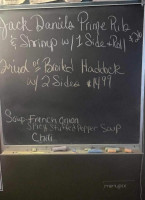 Jack Daniels Prime Rib
& Shrimp w/1 Side + Roll $26
Fried or Broiled Haddock
w/2 Sides $14.99
Soup - French Onion
Spicy Stuffed Pepper Soup
Chili